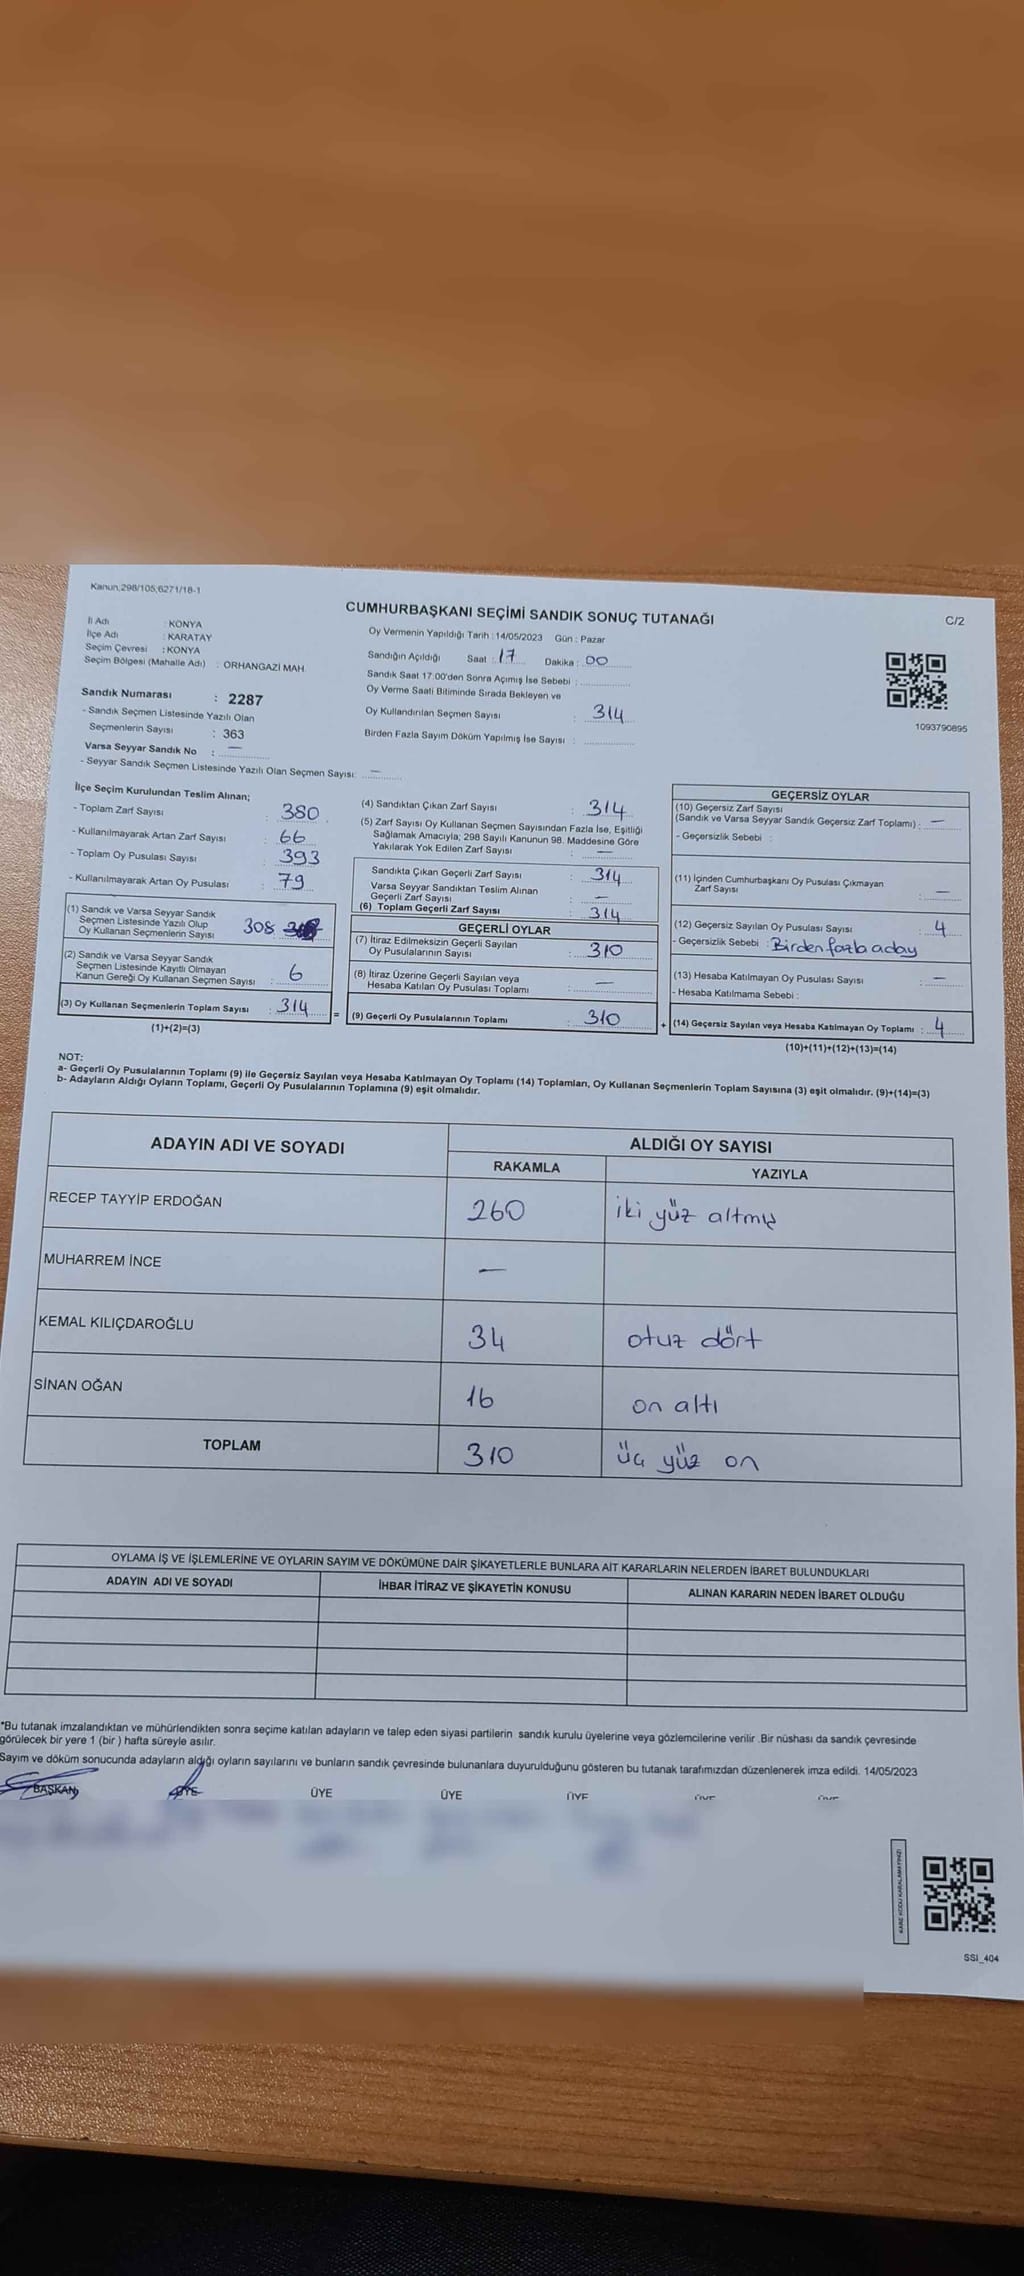 Kanun;298/105;6271/18-1
CUMHURBAŞKANI SEÇİMİ SANDIK SONUÇ TUTANAĞI
C/2
İl Adı : KONYA
İlçe Adı : KARATAY
Seçim Çevresi : KONYA
Seçim Bölgesi (Mahalle Adı) : ORHANGAZİ MAH.
Sandık Numarası : 2287
- Sandık Seçmen Listesinde Yazılı Olan
Seçmenlerin Sayısı : 363
Varsa Seyyar Sandık No : —
- Seyyar Sandık Seçmen Listesinde Yazılı Olan Seçmen Sayısı: —
Oy Vermenin Yapıldığı Tarih : 14/05/2023 Gün : Pazar
Sandığın Açıldığı Saat : 17 Dakika : 00
Sandık Saat 17.00'den Sonra Açımış İse Sebebi :
Oy Verme Saati Bitiminde Sırada Bekleyen ve
Oy Kullandırılan Seçmen Sayısı : 314
Birden Fazla Sayım Döküm Yapılmış İse Sayısı :
1093790895
İlçe Seçim Kurulundan Teslim Alınan;
- Toplam Zarf Sayısı : 380
- Kullanılmayarak Artan Zarf Sayısı : 66
- Toplam Oy Pusulası Sayısı : 393
- Kullanılmayarak Artan Oy Pusulası : 79
(1) Sandık ve Varsa Seyyar Sandık
Seçmen Listesinde Yazılı Olup
Oy Kullanan Seçmenlerin Sayısı : 308
(2) Sandık ve Varsa Seyyar Sandık
Seçmen Listesinde Kayıtlı Olmayan
Kanun Gereği Oy Kullanan Seçmen Sayısı : 6
(3) Oy Kullanan Seçmenlerin Toplam Sayısı : 314 =
(1)+(2)=(3)
(4) Sandıktan Çıkan Zarf Sayısı : 314
(5) Zarf Sayısı Oy Kullanan Seçmen Sayısından Fazla İse, Eşitliği
Sağlamak Amacıyla; 298 Sayılı Kanunun 98. Maddesine Göre
Yakılarak Yok Edilen Zarf Sayısı : —
Sandıkta Çıkan Geçerli Zarf Sayısı : 314
Varsa Seyyar Sandıktan Teslim Alınan
Geçerli Zarf Sayısı : —
(6) Toplam Geçerli Zarf Sayısı : 314
GEÇERLİ OYLAR
(7) İtiraz Edilmeksizin Geçerli Sayılan
Oy Pusulalarının Sayısı : 310
(8) İtiraz Üzerine Geçerli Sayılan veya
Hesaba Katılan Oy Pusulası Toplamı : —
(9) Geçerli Oy Pusulalarının Toplamı : 310 +
GEÇERSİZ OYLAR
(10) Geçersiz Zarf Sayısı
(Sandık ve Varsa Seyyar Sandık Geçersiz Zarf Toplamı) : —
- Geçersizlik Sebebi :
(11) İçinden Cumhurbaşkanı Oy Pusulası Çıkmayan
Zarf Sayısı : —
(12) Geçersiz Sayılan Oy Pusulası Sayısı : 4
- Geçersizlik Sebebi : Birden fazla aday
(13) Hesaba Katılmayan Oy Pusulası Sayısı : —
- Hesaba Katılmama Sebebi :
(14) Geçersiz Sayılan veya Hesaba Katılmayan Oy Toplamı : 4
(10)+(11)+(12)+(13)=(14)
NOT:
a- Geçerli Oy Pusulalarının Toplamı (9) ile Geçersiz Sayılan veya Hesaba Katılmayan Oy Toplamı (14) Toplamları, Oy Kullanan Seçmenlerin Toplam Sayısına (3) eşit olmalıdır. (9)+(14)=(3)
b- Adayların Aldığı Oyların Toplamı, Geçerli Oy Pusulalarının Toplamına (9) eşit olmalıdır.
ADAYIN ADI VE SOYADI ALDIĞI OY SAYISI
RAKAMLA YAZIYLA
RECEP TAYYİP ERDOĞAN 260 iki yüz altmış
MUHARREM İNCE —
KEMAL KILIÇDAROĞLU 34 otuz dört
SİNAN OĞAN 16 on altı
TOPLAM 310 üç yüz on
OYLAMA İŞ VE İŞLEMLERİNE VE OYLARIN SAYIM VE DÖKÜMÜNE DAİR ŞİKAYETLERLE BUNLARA AİT KARARLARIN NELERDEN İBARET BULUNDUKLARI
ADAYIN ADI VE SOYADI İHBAR İTİRAZ VE ŞİKAYETİN KONUSU ALINAN KARARIN NEDEN İBARET OLDUĞU
*Bu tutanak imzalandıktan ve mühürlendikten sonra seçime katılan adayların ve talep eden siyasi partilerin sandık kurulu üyelerine veya gözlemcilerine verilir .Bir nüshası da sandık çevresinde
görülecek bir yere 1 (bir ) hafta süreyle asılır.
Sayım ve döküm sonucunda adayların aldığı oyların sayılarını ve bunların sandık çevresinde bulunanlara duyurulduğunu gösteren bu tutanak tarafımızdan düzenlenerek imza edildi. 14/05/2023
BAŞKAN ÜYE ÜYE ÜYE ÜYE ÜYE ÜYE
KARE KODU KARALAMAYINIZ!
SSI_404